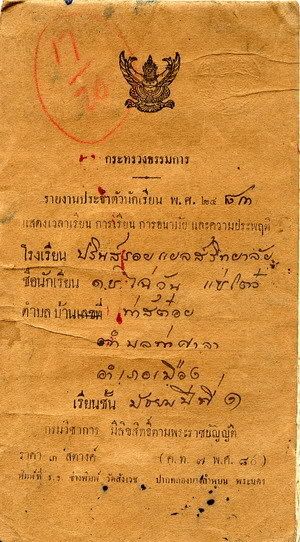 17/26
กระทรวงธรรมการ
รายงานประจำตัวนักเรียน พ.ศ. ๒๔๘๓
แสดงเวลาเรียน การเรียน การอนามัย และความประพฤติ
โรงเรียน ปรินส์รอยแยลส์วิทยาลัย
ชื่อนักเรียน แซ่
ตำบล บ้านเลขที่ ท่าสต๋อย
อำเภอเมือง
เรียนชั้น มัธยมปีที่ ๑
กรมวิชาการ มีลิขสิทธิ์ตามพระราชบัญญัติ
ราคา ๓ สตางค์ (ค.ท. ๗ พ.ศ. ๘๐)
พิมพ์ที่ ร.ร. ช่างพิมพ์ วัดสังเวช ปากคลองบางลำพูบน พระนคร